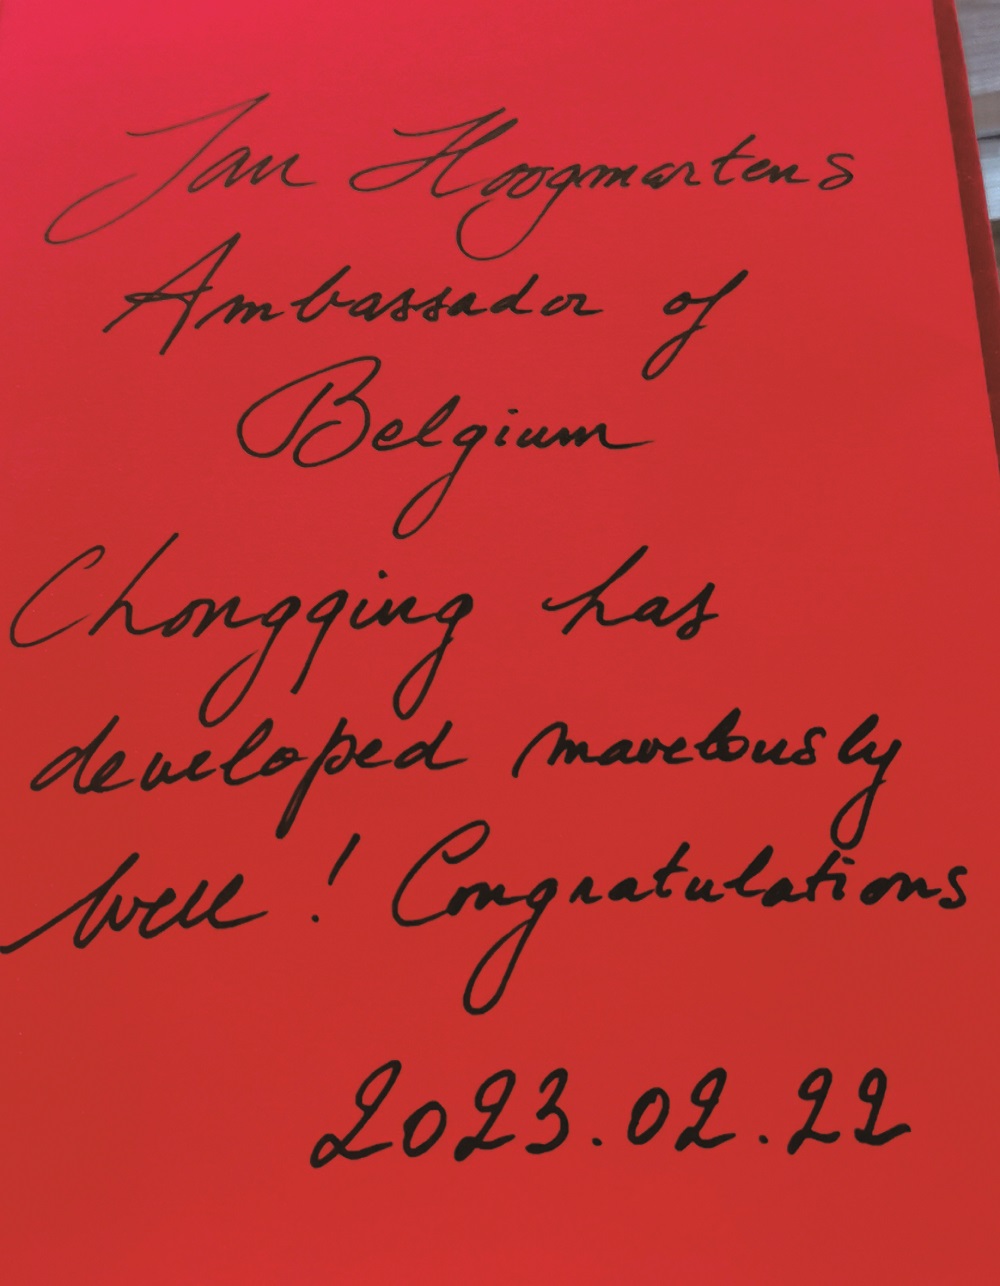 Jan Hoogmartens
Ambassador of
Belgium
Chongqing has
developed mavelously
well! Congratulations
2023.02.22